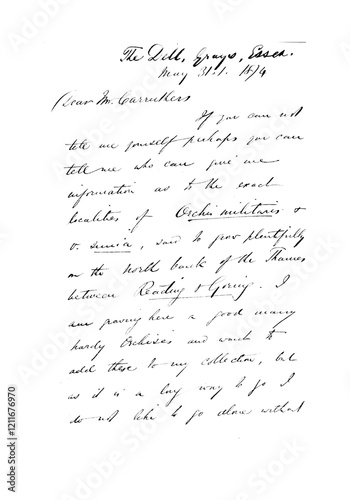 The Dell, Grays, Essex.
May 31st. 1874
Dear Mr. Carruthers
If you can not
tell me yourself perhaps you can
tell me who can give me
information as to the exact
localities of Orchis militaris &
O. simia, said to grow plentifully
on the north bank of the Thames
between Reading & Goring. I
am growing here a good many
hardy Orchises and want to
add these to my collection, but
as it is a long way to go I
do not like to go alone without
Adobe Stock
#1211676970